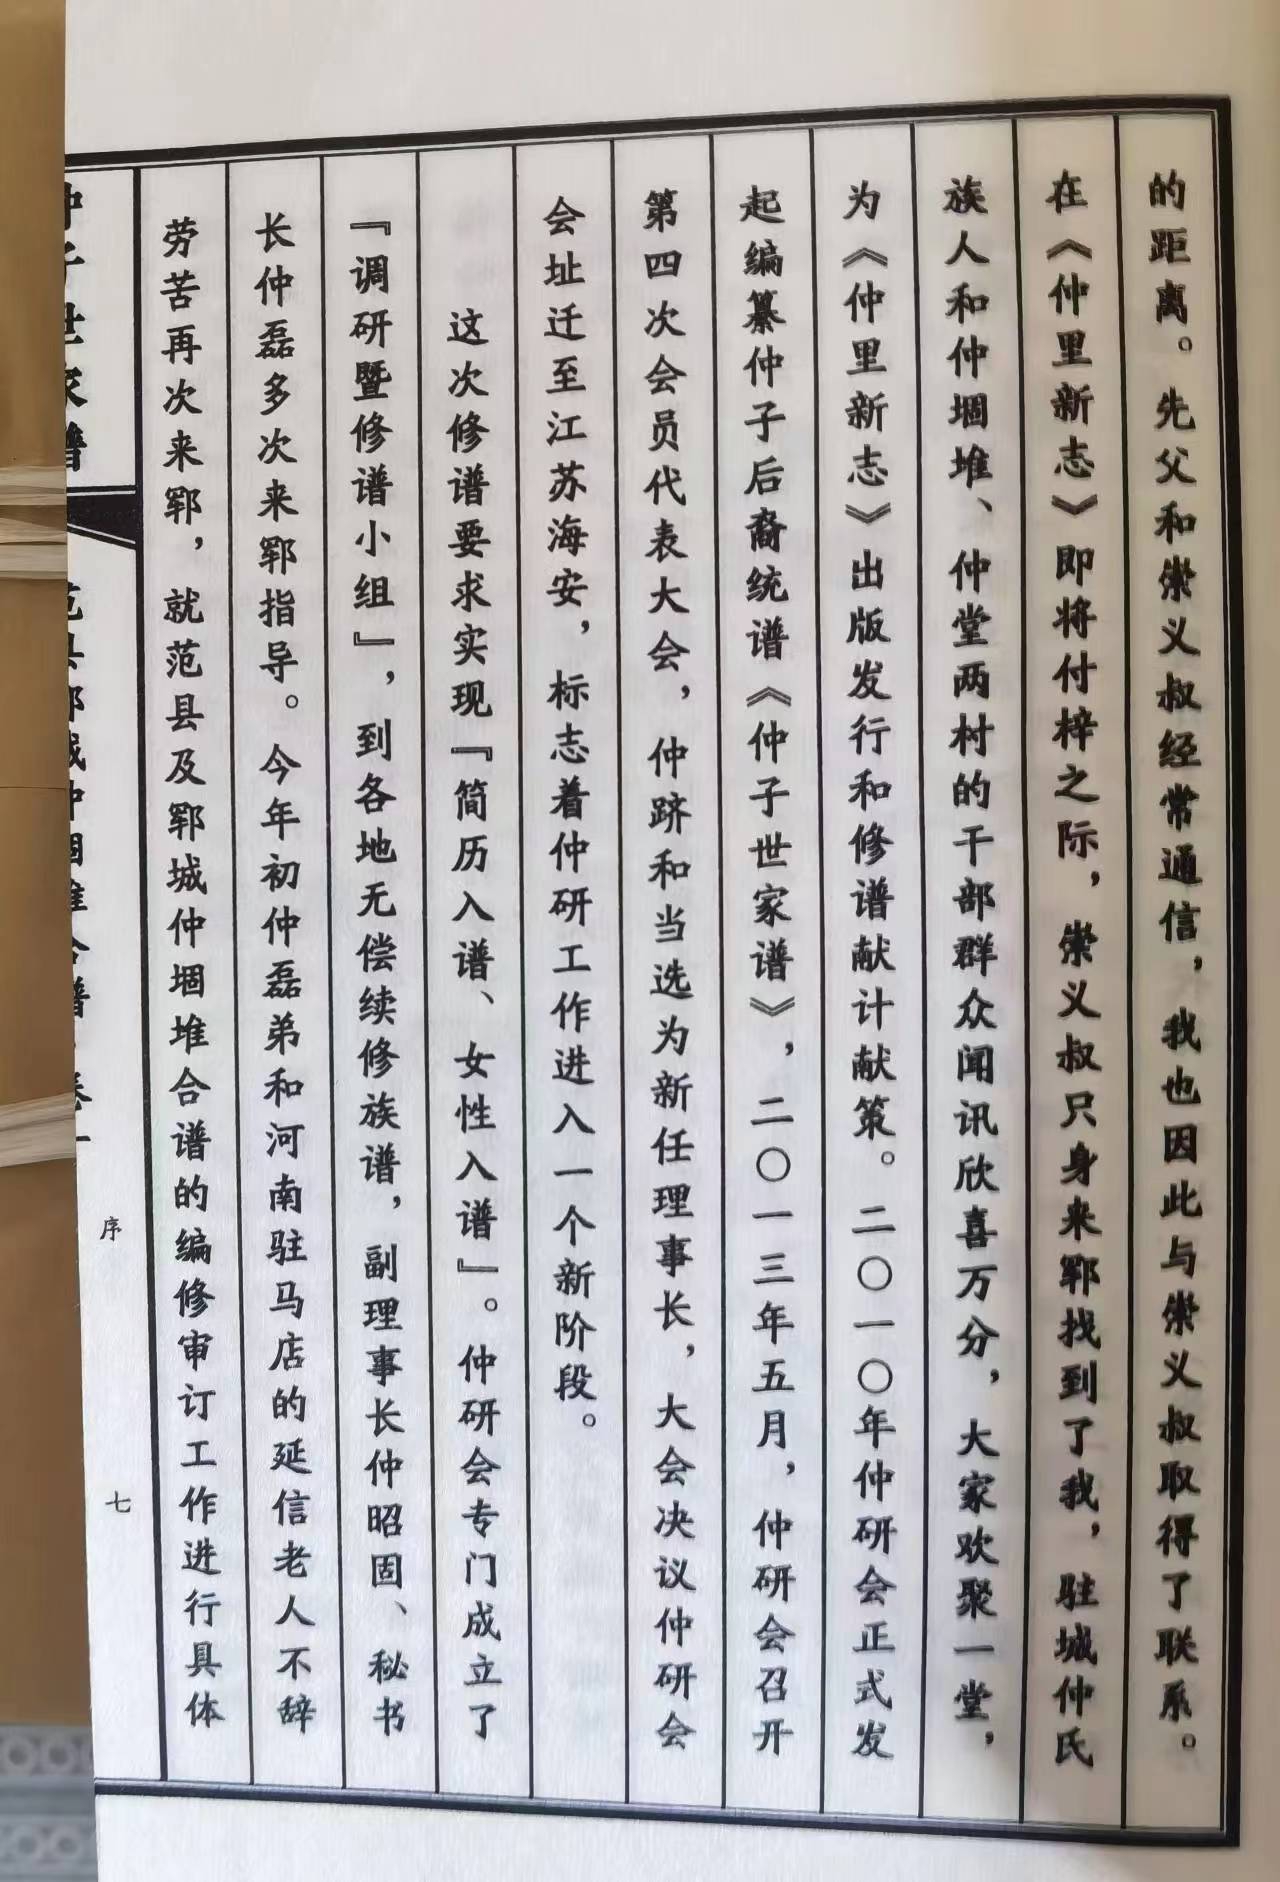 的距离。先父和崇义叔经常通信，我也因此与崇义叔取得了联系。
在《仲里新志》即将付梓之际，崇义叔只身来郓找到了我，驻城仲氏
族人和仲堌堆、仲堂两村的干部群众闻讯欣喜万分，大家欢聚一堂，
为《仲里新志》出版发行和修谱献计献策。二〇一〇年仲研会正式发
起编纂仲子后裔统谱《仲子世家谱》，二〇一三年五月，仲研会召开
第四次会员代表大会，仲跻和当选为新任理事长，大会决议仲研会
会址迁至江苏海安，标志着仲研工作进入一个新阶段。
这次修谱要求实现『简历入谱、女性入谱』。仲研会专门成立了
『调研暨修谱小组』，到各地无偿续修族谱，副理事长仲昭固、秘书
长仲磊多次来郓指导。今年初仲磊弟和河南驻马店的延信老人不辞
劳苦再次来郓，就范县及郓城仲堌堆合谱的编修审订工作进行具体
仲子世家谱
范县郓城仲堌堆合谱·卷一
序
七